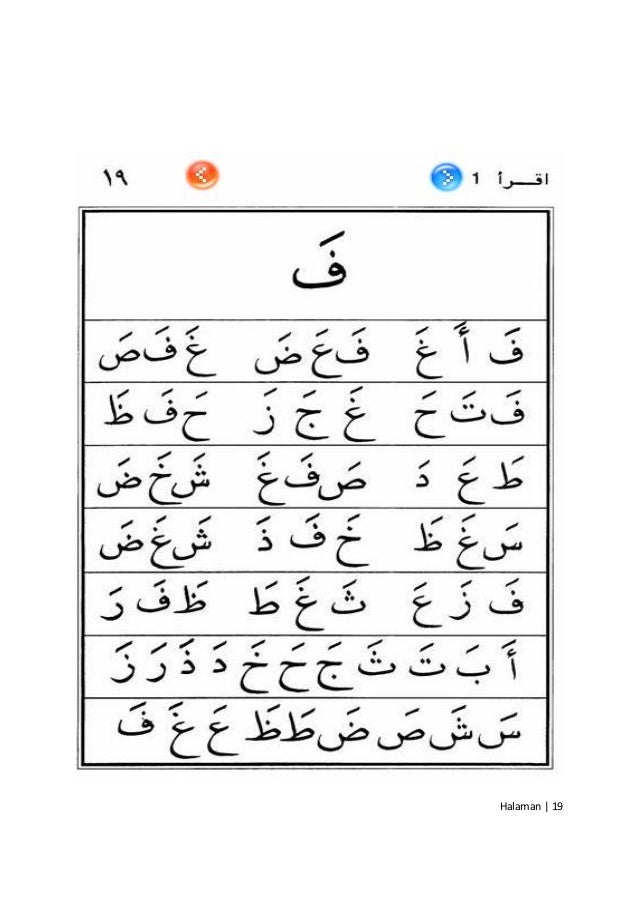 اقـــرأ 1 ١٩
فَ
فَ أَ غَ فَ عَ ضَ غَ فَ صَ
فَ تَ حَ غَ جَ زَ حَ فَ ظَ
طَ عَ دَ صَ فَ غَ شَ خَ ضَ
سَ غَ ظَ خَ فَ ذَ شَ غَ ضَ
فَ زَ عَ ثَ غَ طَ ظَ فَ رَ
أَ بَ تَ ثَ جَ حَ خَ دَ ذَ رَ زَ
سَ شَ صَ ضَ طَ ظَ عَ غَ فَ
Halaman | 19